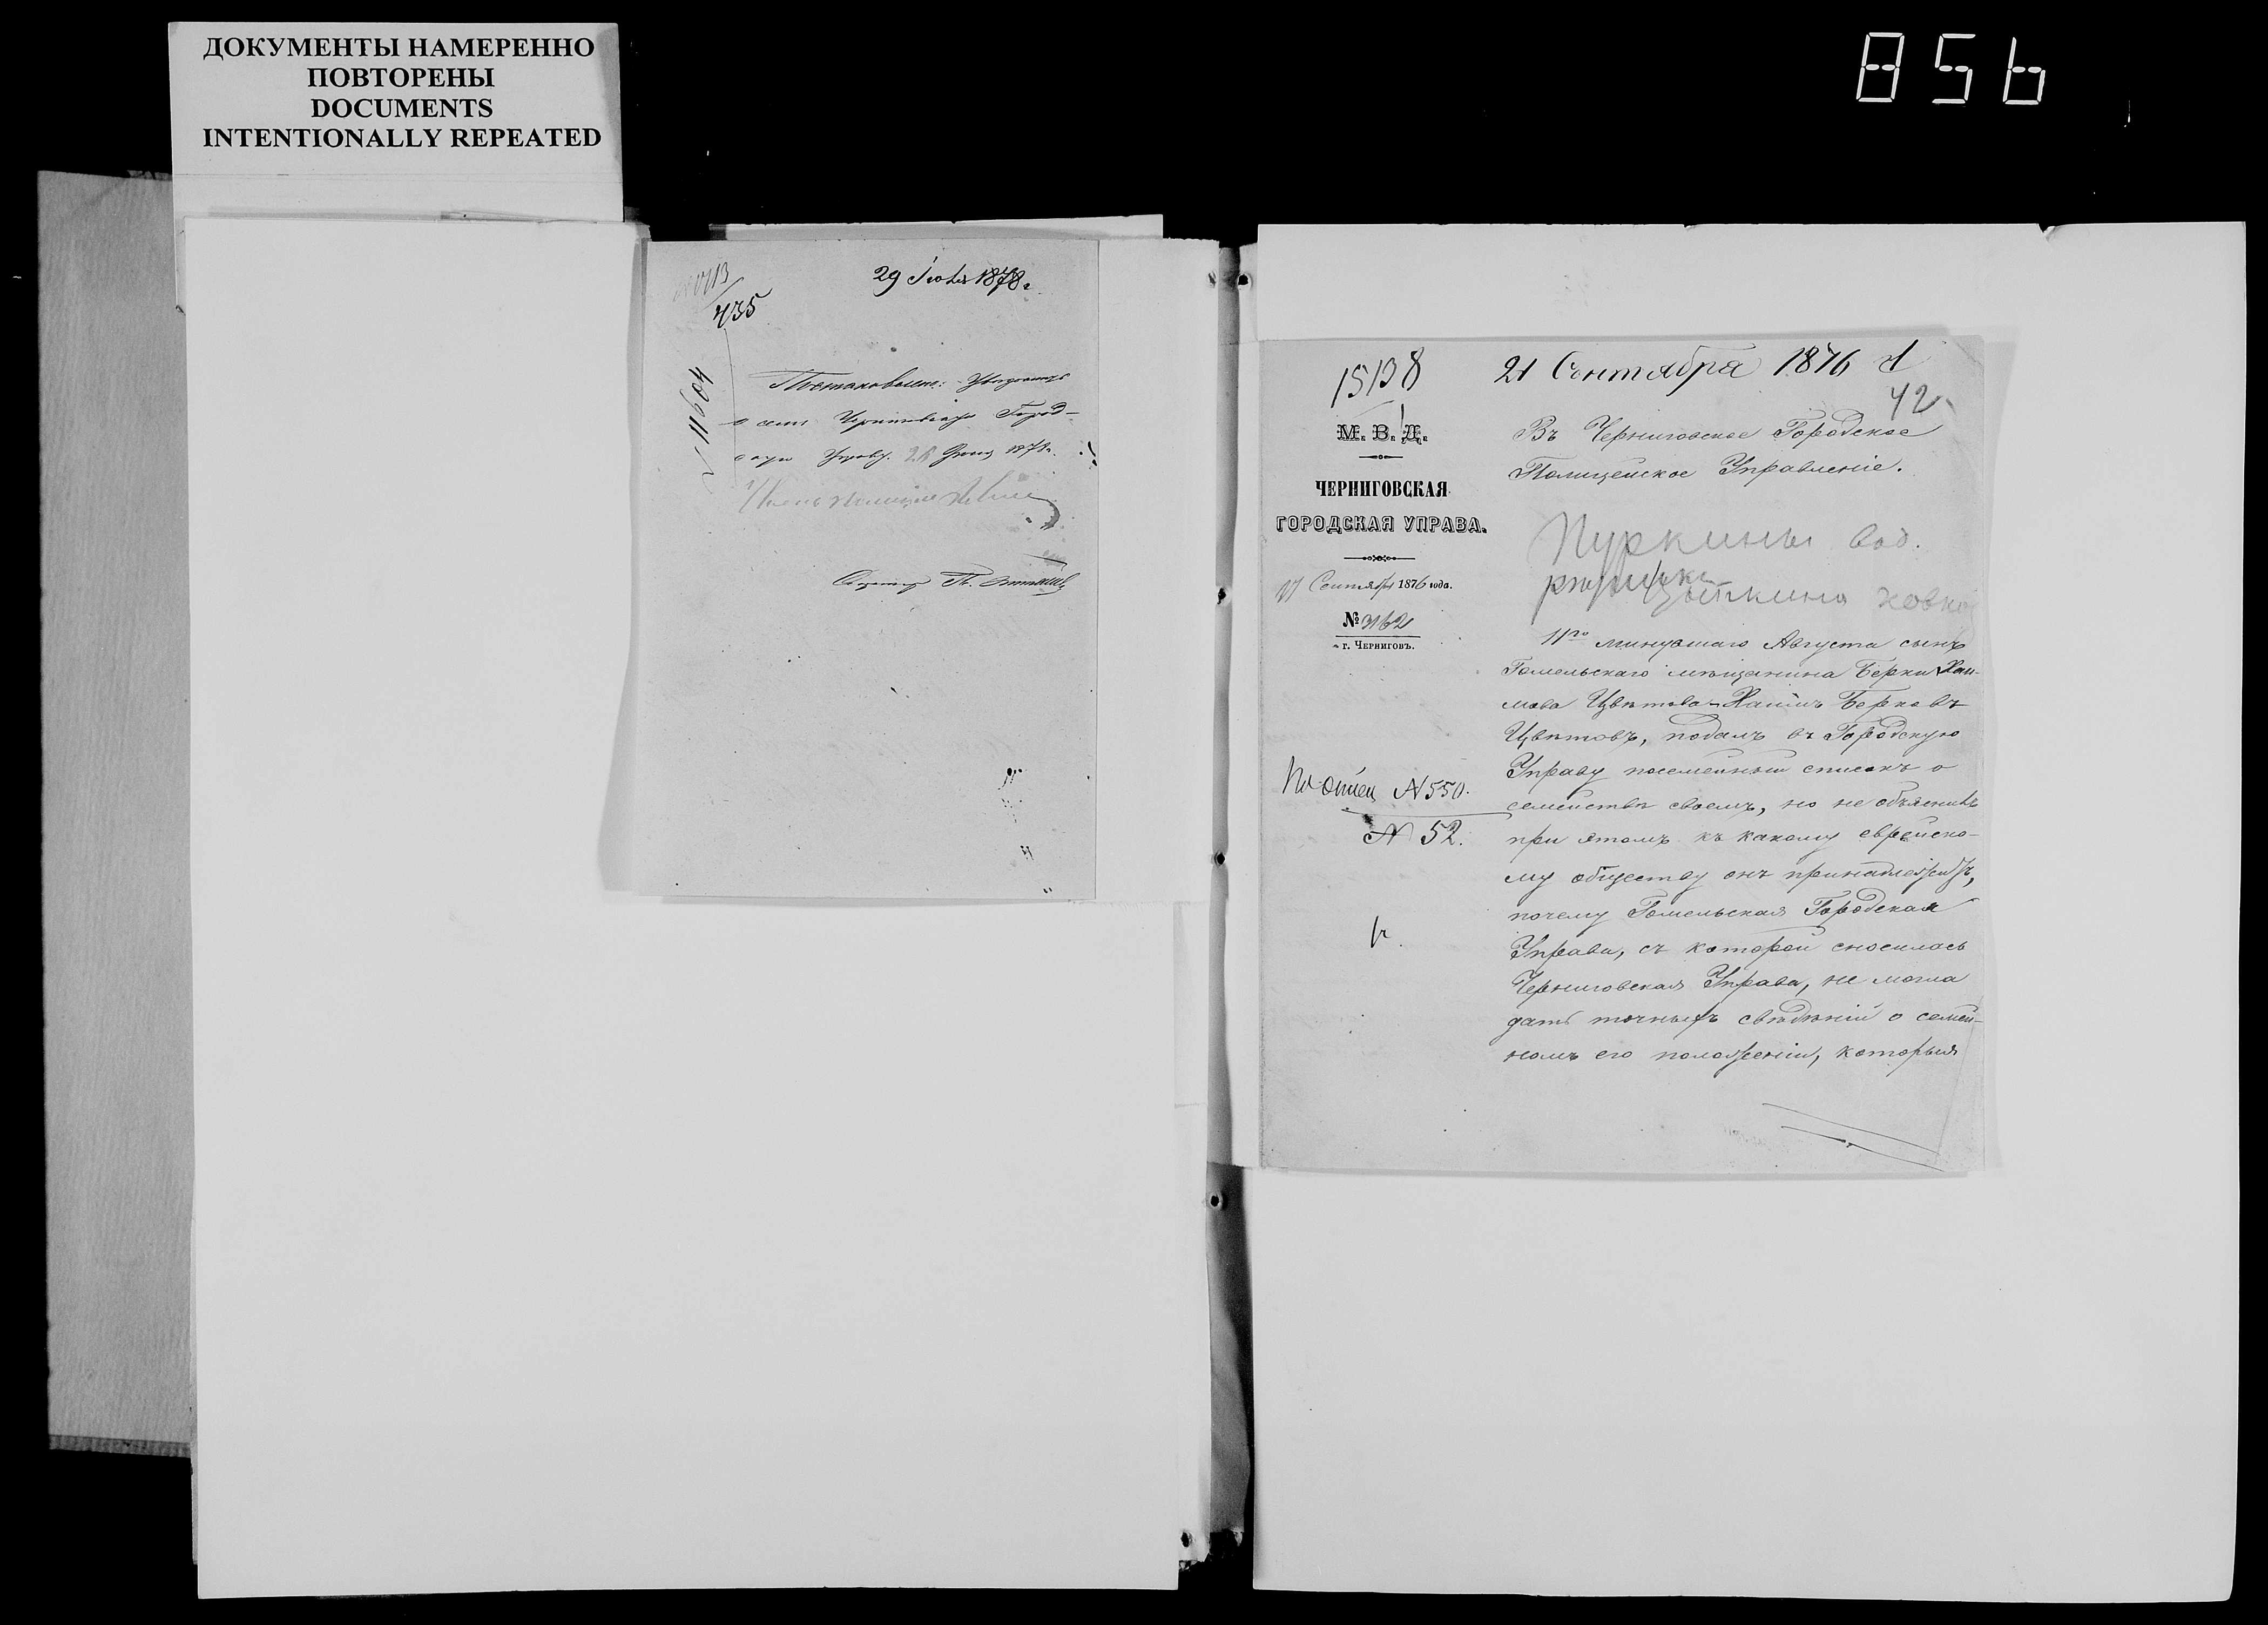 ДОКУМЕНТЫ НАМЕРЕННО
ПОВТОРЕНЫ
DOCUMENTS
INTENTIONALLY REPEATED
856
435
29 Іюля 1878 г.
11604
Постановлено: Увѣдомить
о семъ Черниговскую Город-
скую Управу. Іюня 1878 г.
15138
21 Сентября 1876 г.
42
М. В. Д.
ЧЕРНИГОВСКАЯ
ГОРОДСКАЯ УПРАВА.
Сентября 1876 года.
№ 3162
г. Черниговъ.
По описи N 550.
N 52.
Въ Черниговское Городское
Полицейское Управленіе.
11го минувшаго Августа сынъ
Гомельскаго мѣщанина Берки Хаи-
мова Цвѣтова Хаимъ Берковъ
Цвѣтовъ, подалъ въ Городскую
Управу посемейный списокъ о
семействѣ своемъ, но не объяснилъ
при этомъ къ какому еврейско-
му обществу онъ принадлежитъ,
почему Гомельская Городская
Управа, съ которой сносилась
Черниговская Управа, не могла
дать точныхъ свѣдѣній о семей-
номъ его положеніи, которыя